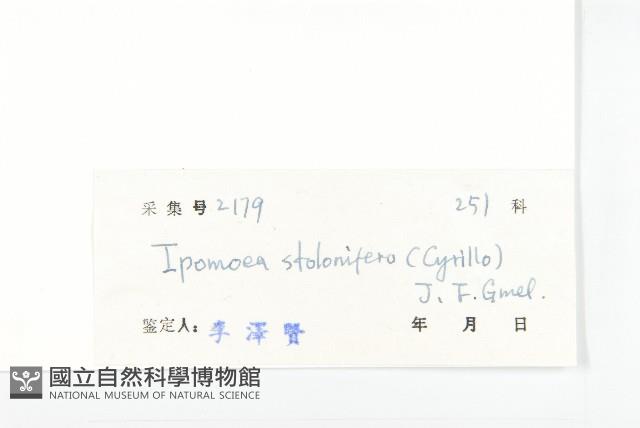 采集号 2179 251 科
Ipomoea stolonifera (Cyrillo)
J. F. Gmel.
鉴定人: 李澤賢 年 月 日
國立自然科學博物館
NATIONAL MUSEUM OF NATURAL SCIENCE